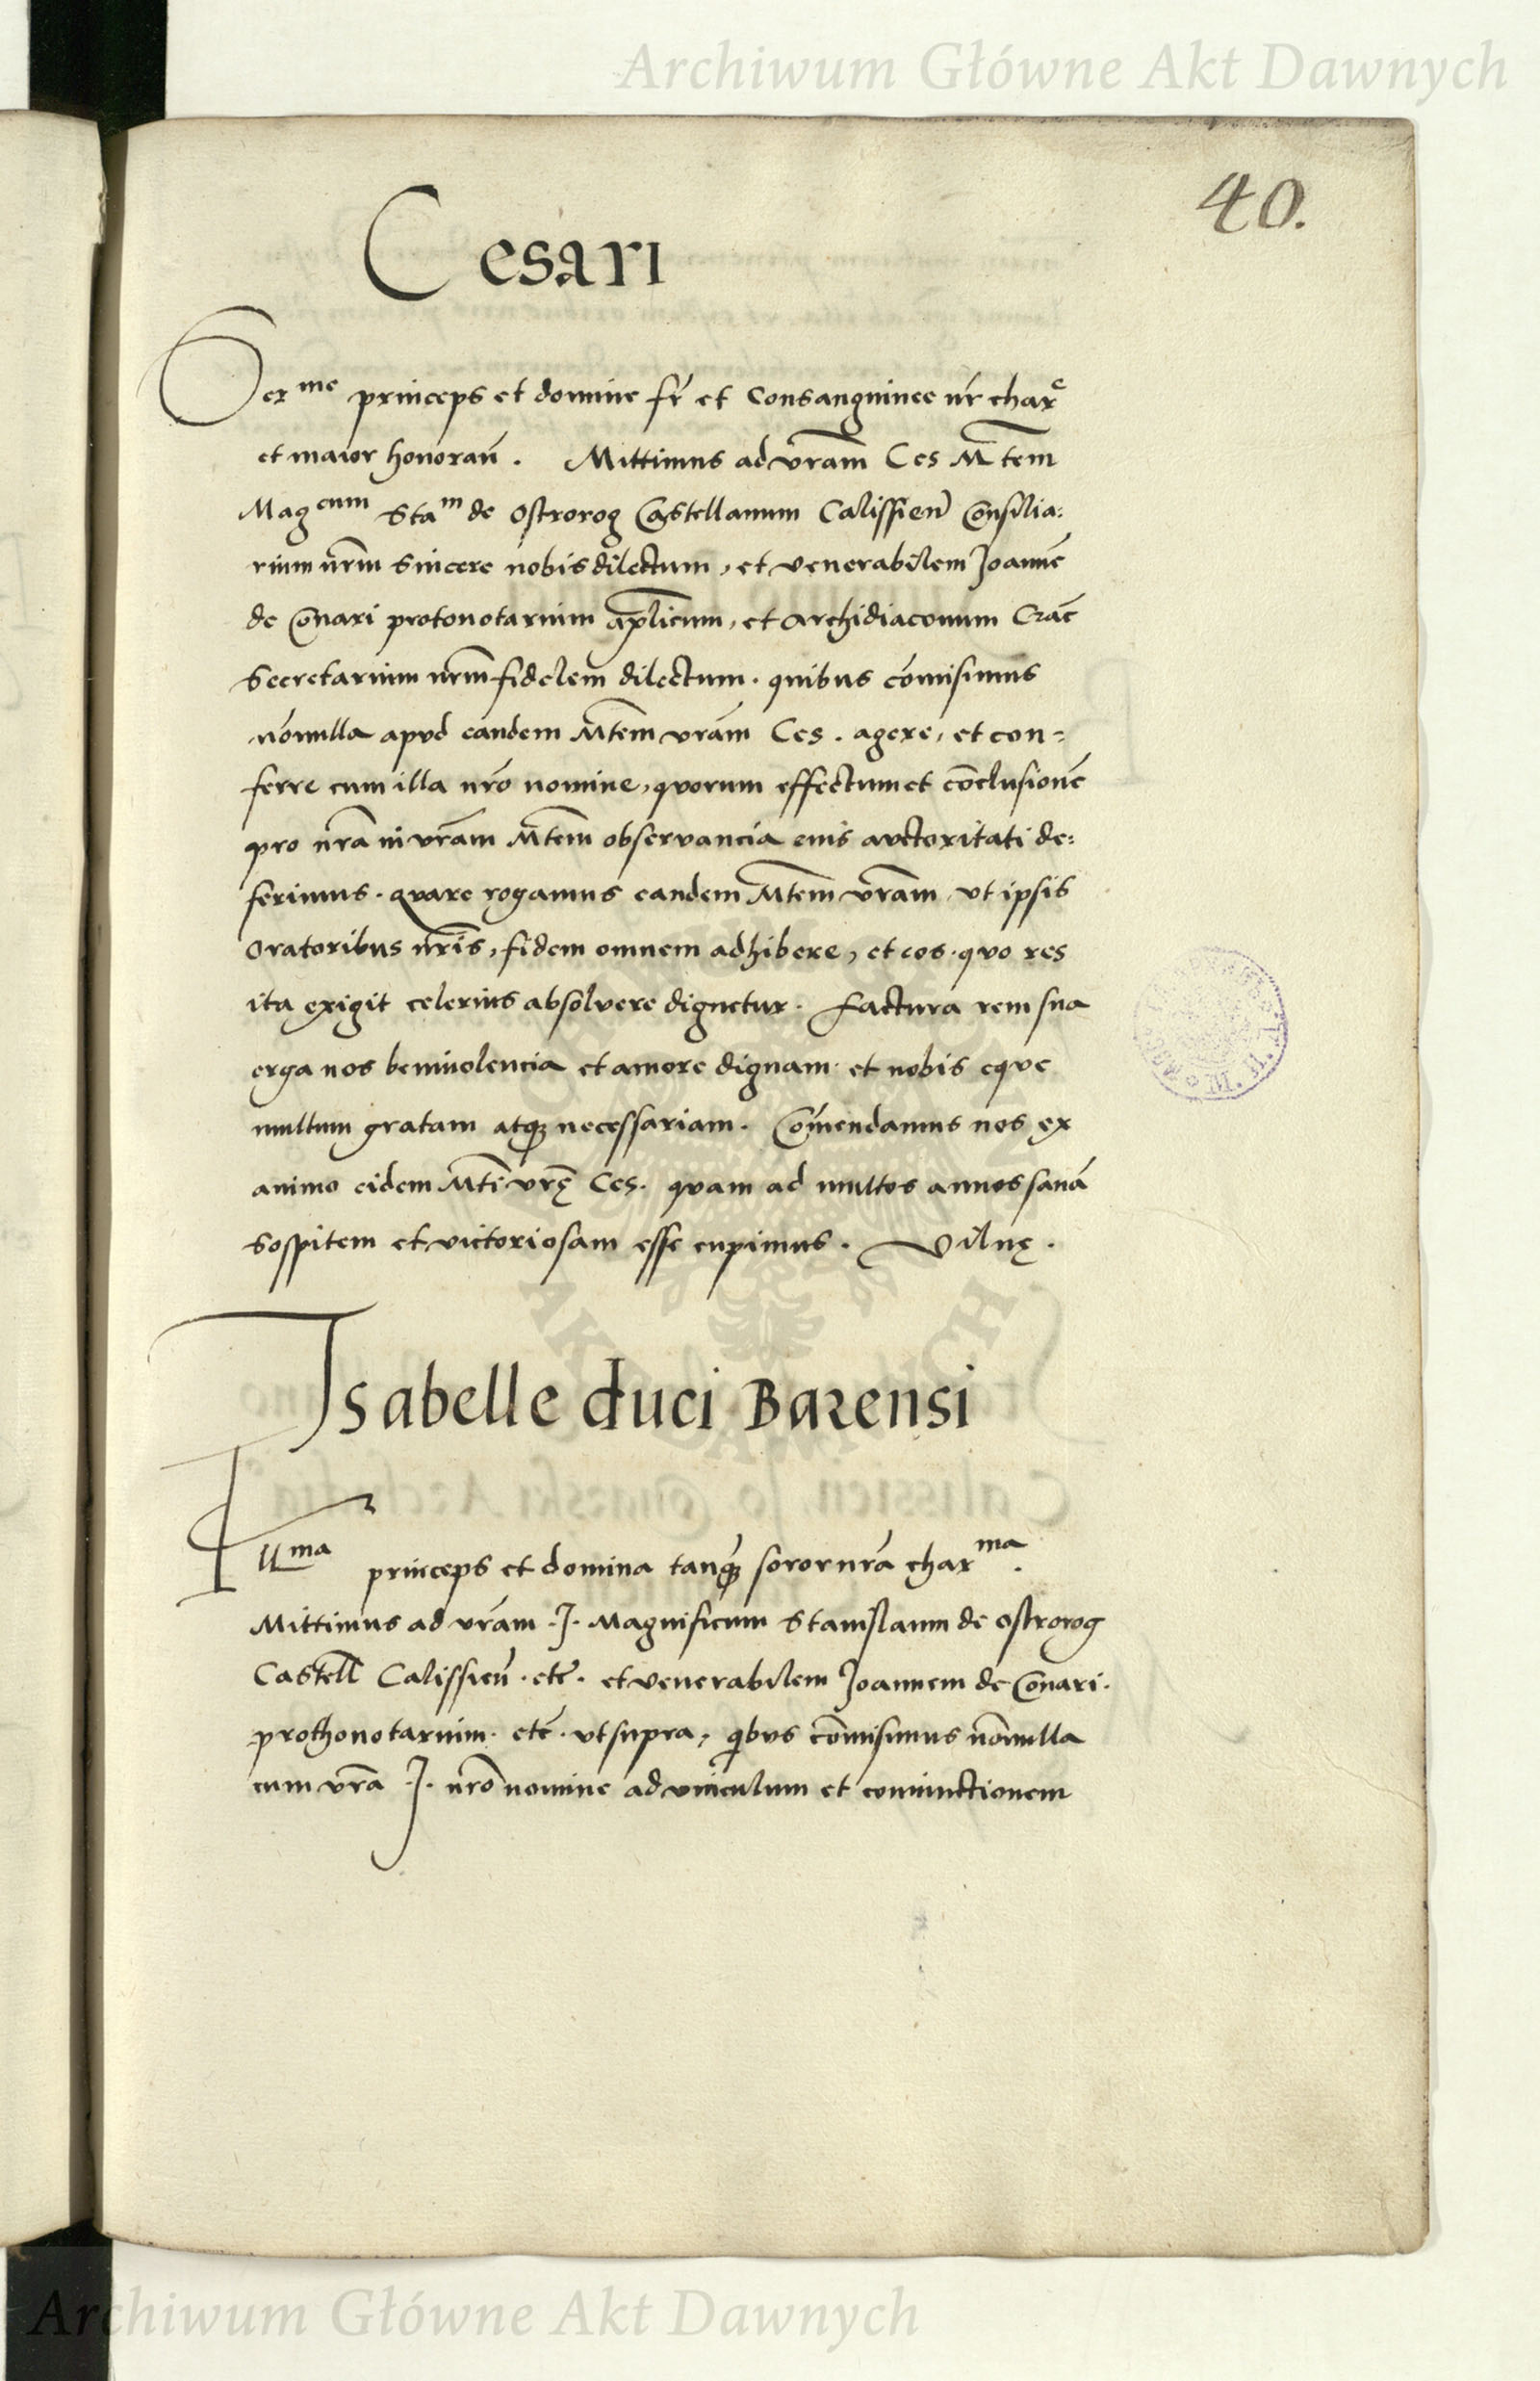 Archiwum Główne Akt Dawnych
40.
Cesari
Serme princeps et domine fr̄ et Consanguinee nr̄ char̄e
et maior honoran̄. Mittimus ad vr̄am Ces M̄tem
Magcum Stam de Ostrorog Castellanum Calissien̄ Consilia:
rium nr̄m sincere nobis dilectum, et venerabilem Joannē
de Conari protonotarium ap̄licum, et Archidiaconum Crac̄
Secretarium nr̄m fidelem dilectum. quibus cōmisimus
nōnulla apud eandem M̄tem vr̄am Ces. agere, et con=
ferre cum illa nr̄o nomine, quorum effectum et cōclusionē
pro nr̄a in vr̄am M̄tem observancia eius auctoritati de:
ferimus. quare rogamus eandem M̄tem vr̄am, ut ipsis
Oratoribus nr̄is, fidem omnem adhibere, et eos. quo res
ita exigit celerius absolvere dignetur. factura rem sua
erga nos benivolencia et amore dignam. et nobis eque
multum gratam atqȝ necessariam. Cōmendamus nos ex
animo eidem M̄ti vr̄ę Ces. quam ad multos annos sanā
sospitem et victoriosam esse cupimus. Vilnę.
Isabelle duci Barensi
Illma princeps et domina tanqȝ soror nr̄a charma.
Mittimus ad vr̄am .I. Magnificum Stanislaum de Ostrorog
Castell̄ Calissien̄. etc̄. et venerabilem Joannem de Conari.
prothonotarium. etc̄. ut supra, qibus cōmisimus nōnulla
cum vr̄a .I. nr̄o nomine ad vinculum et coniunctionem
AKT DAWNYCH
Archiwum Główne Akt Dawnych